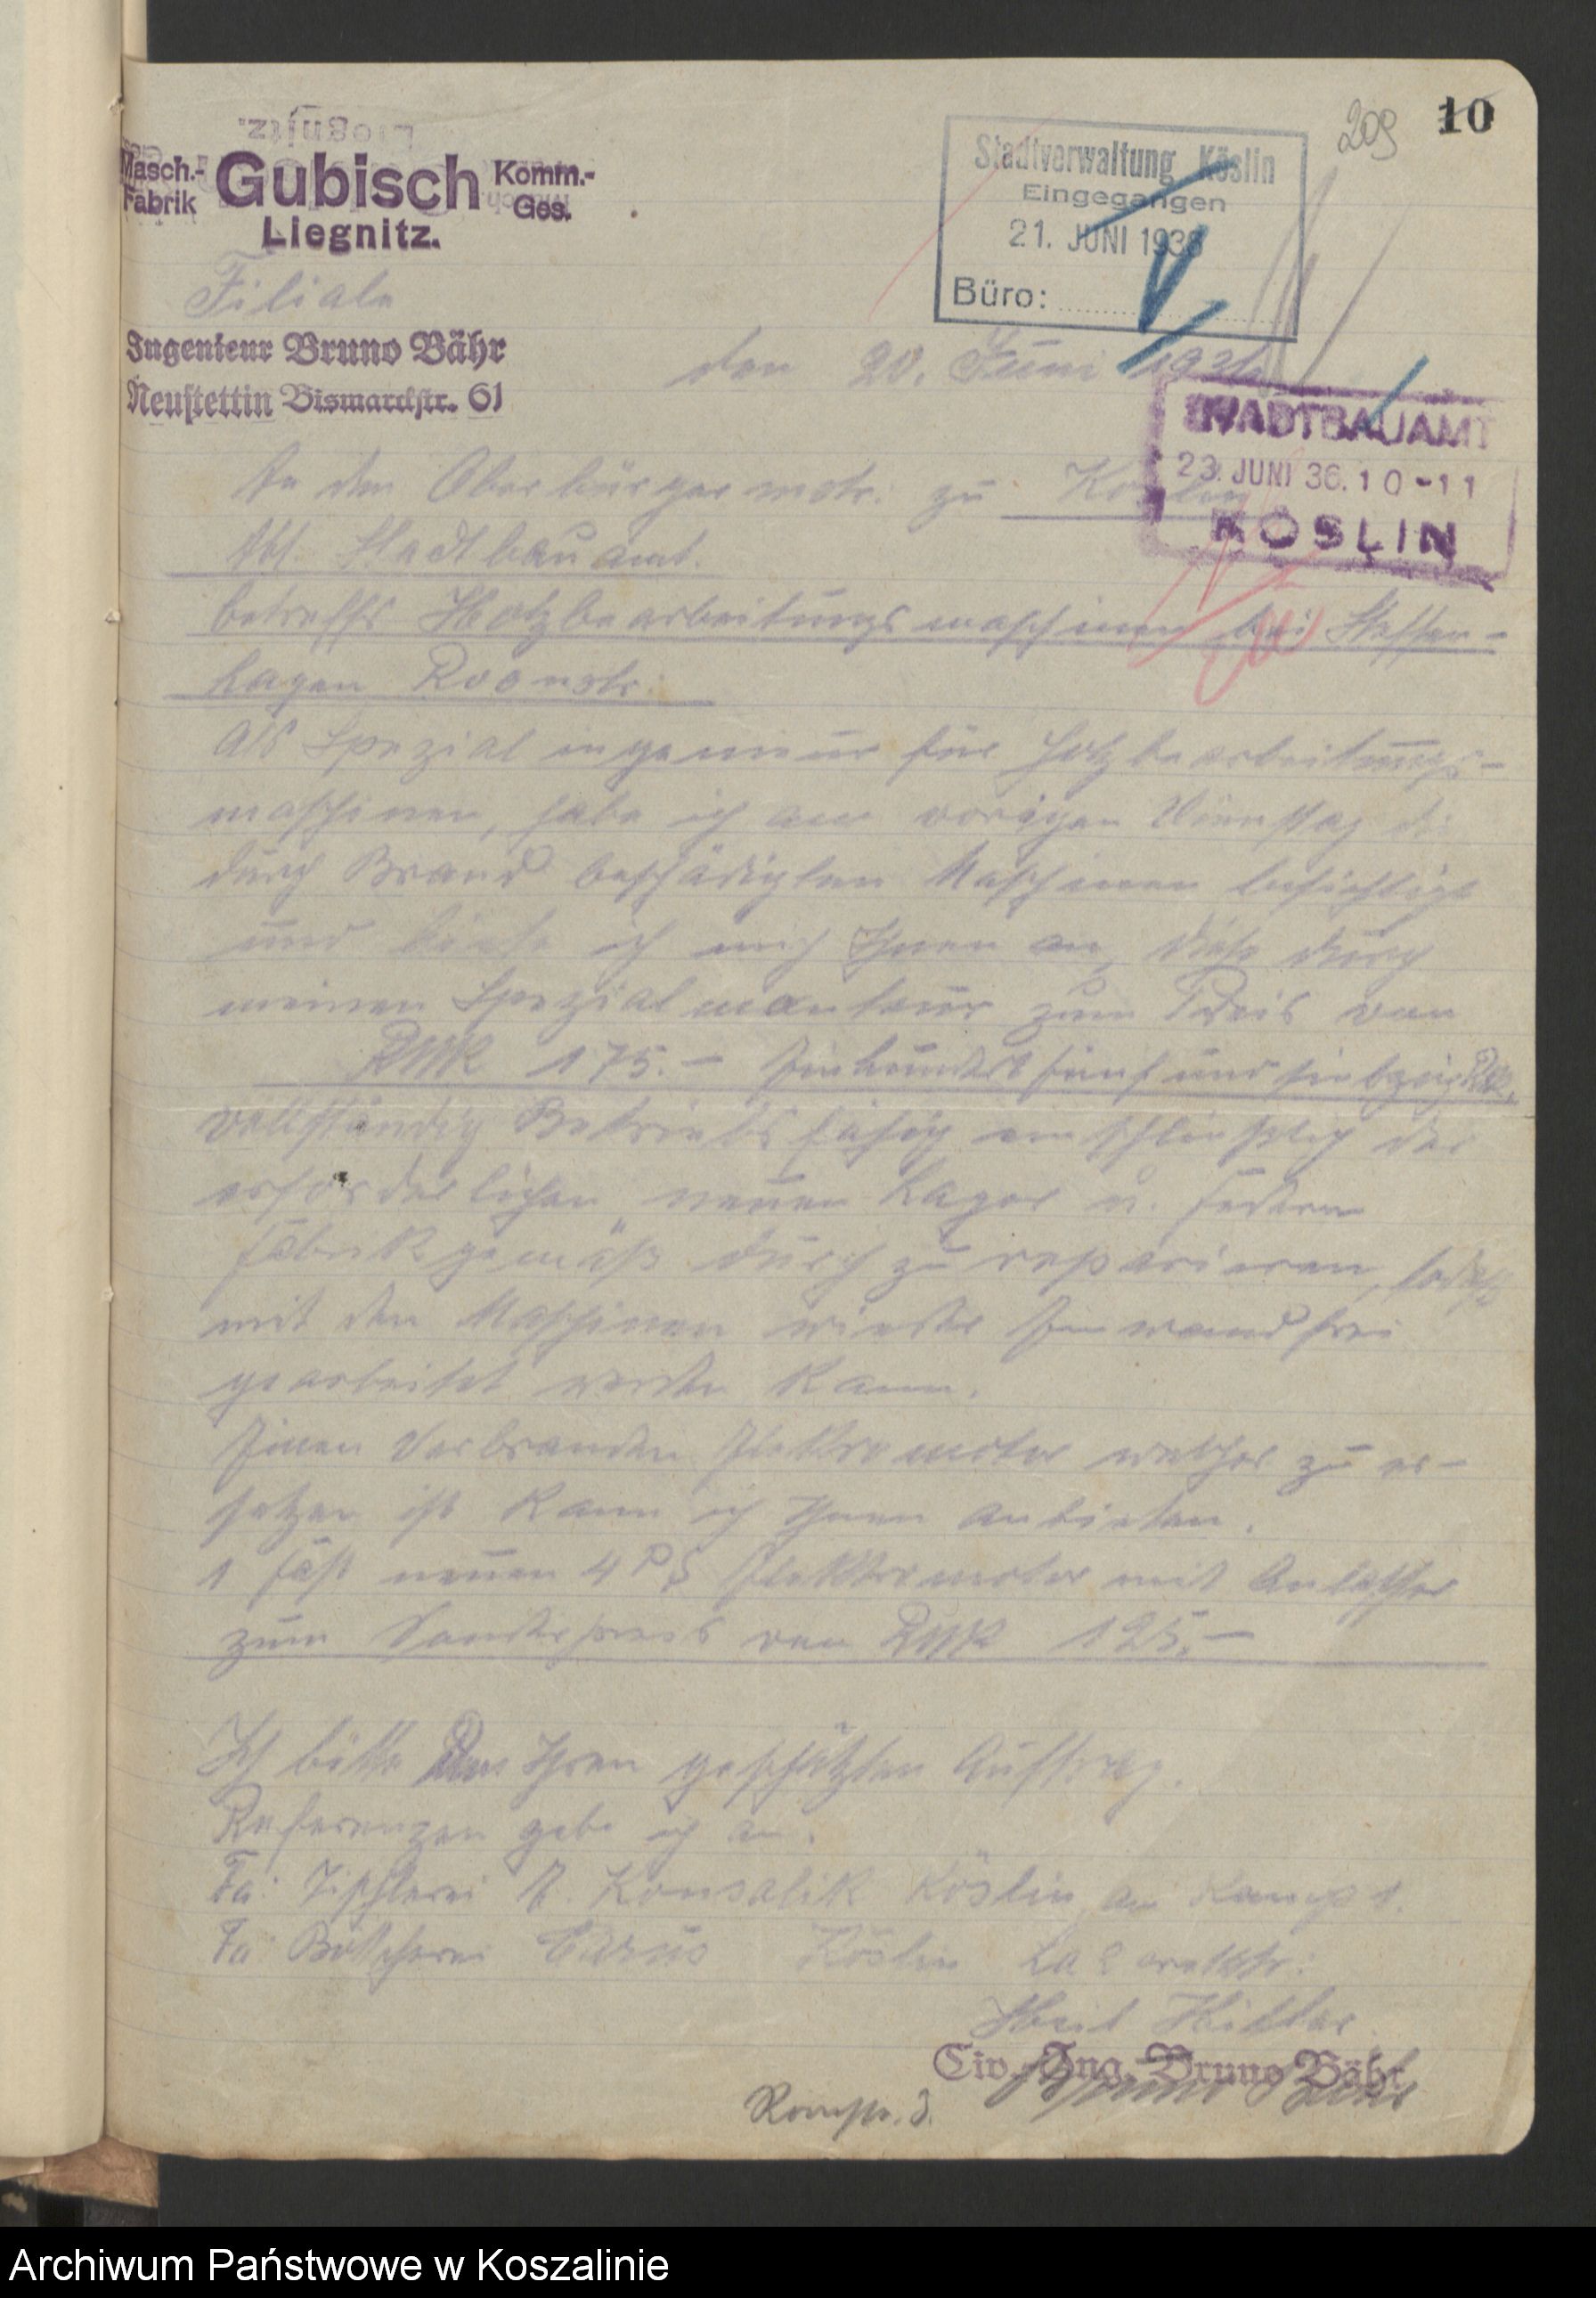 10
209
Liegnitz.
Masch.-Fabrik Gubisch Komm.-Ges.
Liegnitz.
Stadtverwaltung Köslin
Eingegangen
21. JUNI 1936
Büro:
Filiale
Ingenieur Bruno Bähr
Neustettin Bismarckstr. 61
den 20. Juni 1936
STADTBAUAMT
23. JUNI 36. 10-11
KÖSLIN
An den Oberbürgermstr. zu Köslin
Abt. Stadtbauamt.
betreffs Holzbearbeitungsmaschinen bei Steffen-
hagen Roonstr.
Als Spezialingenieur für Holzbearbeitungs-
maschinen, habe ich am vorigen Dienstag die
durch Brand beschädigten Maschinen besichtigt
und biete ich mich Ihnen an, diese durch
meinen Spezialmonteur zum Preis von
RMK 175.- Einhundertfünfundsiebzig RMK.
vollständig Betriebsfähig einschließlich der
erforderlichen neuen Lager u. Federn
fabrikgemäß durch zu reparieren, sodaß
mit den Maschinen wieder Einwandfrei
gearbeitet werden kann.
Einen Verbranden Elektromotor welcher zu er-
setzen ist kann ich Ihnen anbieten.
1 fast neuen 4 PS Elektromotor mit Anlasser
zum Sonderpreis von RMK 125.-
Ich bitte Ihren geschätzten Auftrag.
Referenzen gebe ich an.
Fa: Tischlerei A. Konsalik Köslin am Kamp 1.
Fa: Böttcherei Carus Köslin Lazarettstr:
Heil Hitler.
Civ.-Ing. Bruno Bähr
Bruno Bähr